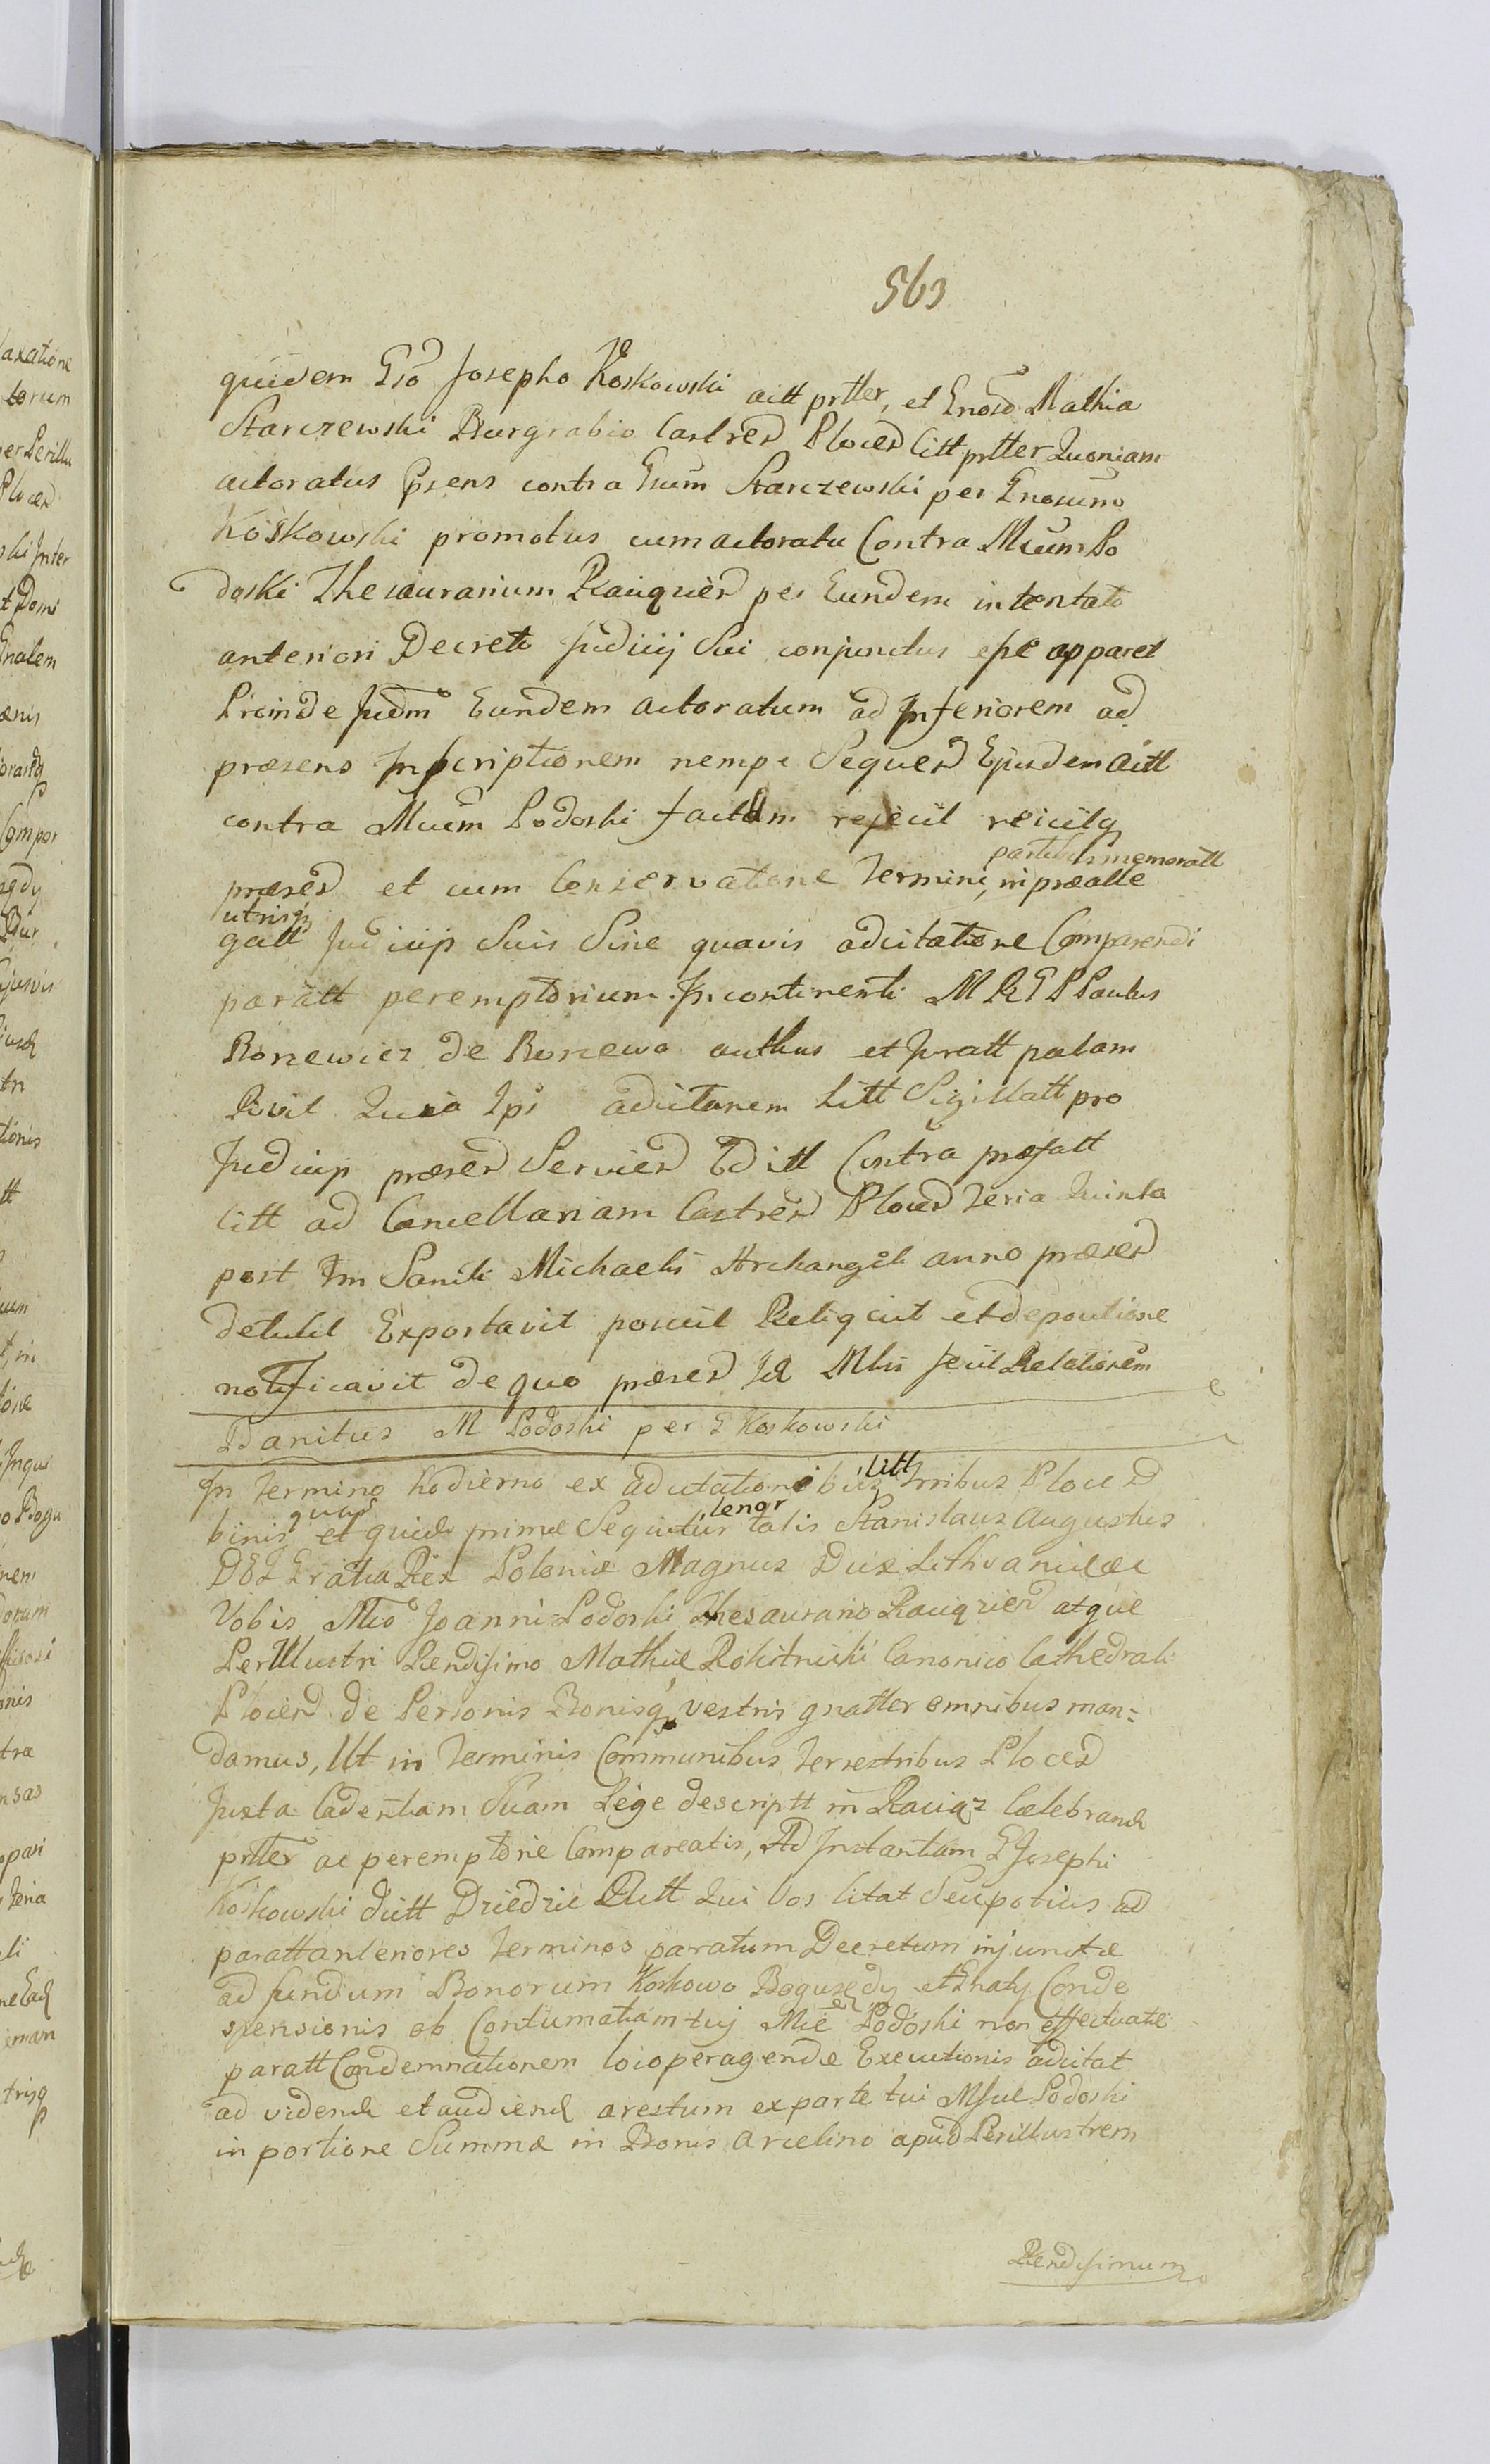 563
quidem Gso Josepho Koskowski aitt prtter, et Gnoso Mathia
Starczewski Burgrabio Castren Plocen Citt prtter Quoniam
actoratus Prens contra Gsum Starczewski per Gnosum
Koskowski promotus cum actoratu Contra Mcum Po
doski Thesaurarium Raciquen per Eundem intentato
anteriori Decreto Judicij Sui conjunctus esse apparet
Proinde Judm Eundem actoratum ad Inferiorem ad
præsens Inscriptionem nempe Sequen Ejusdem aitt
contra Mcum Podoski factam rejecit reicitq
præsen et cum Conservatione Termini, partibus memoratt in præalle
gatt utrisq Judicijs Suis Sine quavis adcitatione Comparendi
paratt peremptorium. In continenti M R G P Paulus
Bonewicz de Bonewo authus et Juratt palam
Rvit Quia Ipse adcitanem Litt Sigillatt pro
Judicijs præsen Servien Editt Contra præfatt
Citt ad Cancellariam Castren Plocen Feria Quinta
post Fm Sancti Michaelis Archangeli anno præsen
detulit Exportavit posuit Reliquit et depositione
notificavit de quo præsen Id Mlis fecit Relationem
Banitus M Podoski per G Koskowski
In Termino hodierno ex adcitationibus Litt Trribus Plocen
binis quar et quide primæ Sequitur tenor talis Stanislaus Augustus
DEI Gratia Rex Poloniæ Magnus Dux Lithvaniæ &c
Vobis Mco Joanni Podoski Thesaurario Raciqzien atque
Perillustri Rendissimo Mathiæ Rokitnicki Canonico Cathedrali
Plocien de Personis Bonisq vestris gnatter omnibus man=
damus, Ut in Terminis Communibus Terrestribus Plocen
Juxta Cadentiam Suam Lege descriptt in Raciąz Celebrand
prtter ac peremptorie Compareatis, Ad Instantiam G Josephi
Koskowski dictt Dziedzic Actt Qui Vos Citat Seu potius ad
paratt anteriores Terminos paratum Decretum injunctæ
ad fundum Bonorum Koskowo Bogusędy et Gnaty Conde
spensionis ob Contumatiam tuj Mce Podoski non effectuatæ
paratt Condemnationem loio peragendæ Executionis adcitat
ad vidend et audiend arestum ex parte tui Msue Podoski
in portione Summæ in Bonis Arcelino apud Perillustrem
Rendissimum